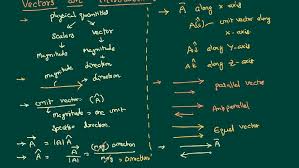 Vectors and
physical quantities
Scalars
Vector
magnitude
magnitude
direction
magnitude
→ direction
→ unit vector (Â)
magnitude = one unit
Specific direction.
→ A = |A| Â
→ Â = A / |A| = Direction
→ A along x-axis
A î → unit vector
x-axis
A ĵ along Y-axis
A along Z-axis
parallel vector
Antiparallel
Equal vector